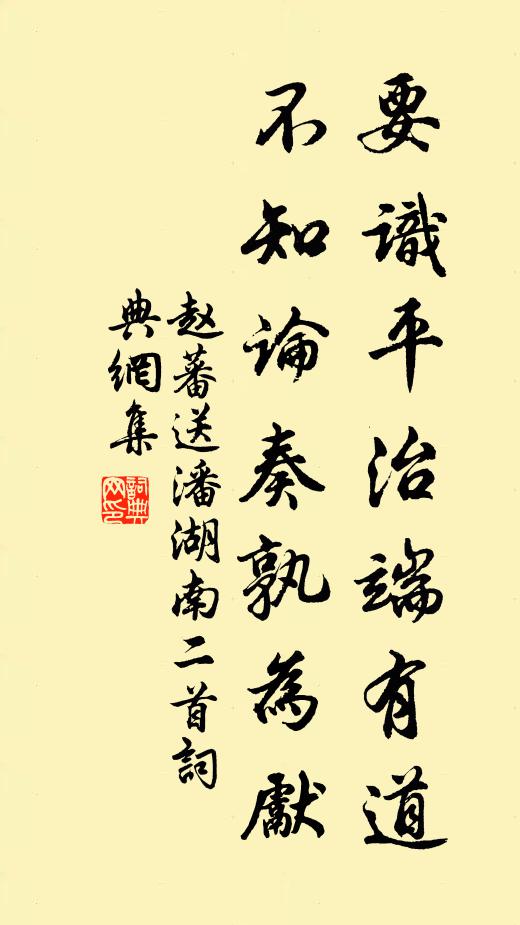 要識平治端有道
不知論奏孰為獻
赵蕃送潘湖南二首詞
典網集
詞典
网印